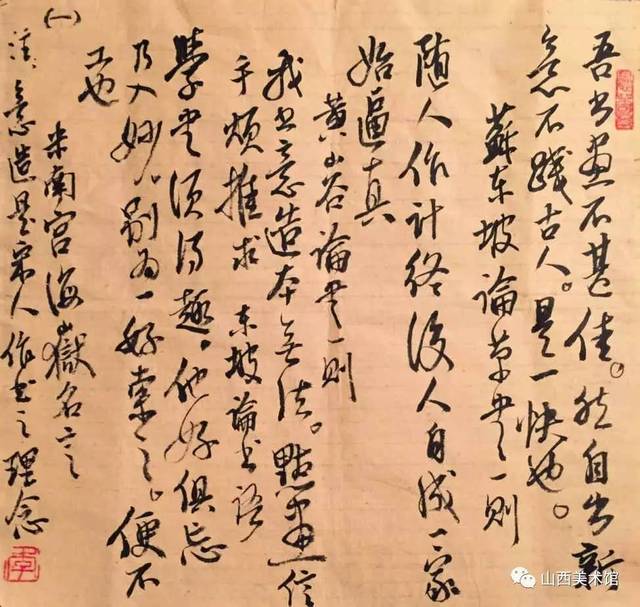 吾书畫不甚佳。然自出新
意不踐古人。是一快也。
蘇东坡論草书一则
随人作计终後人自成一家
始逼真
黄山谷論书一则
我书意造本无法。點畫信
手烦推求 东坡論书语
學书须得趣。他好俱忘
乃入妙。别为一好萦之。便不
工也
米南宫海嶽名言
(一)
注:意造是宋人作书之理念
山西美术馆